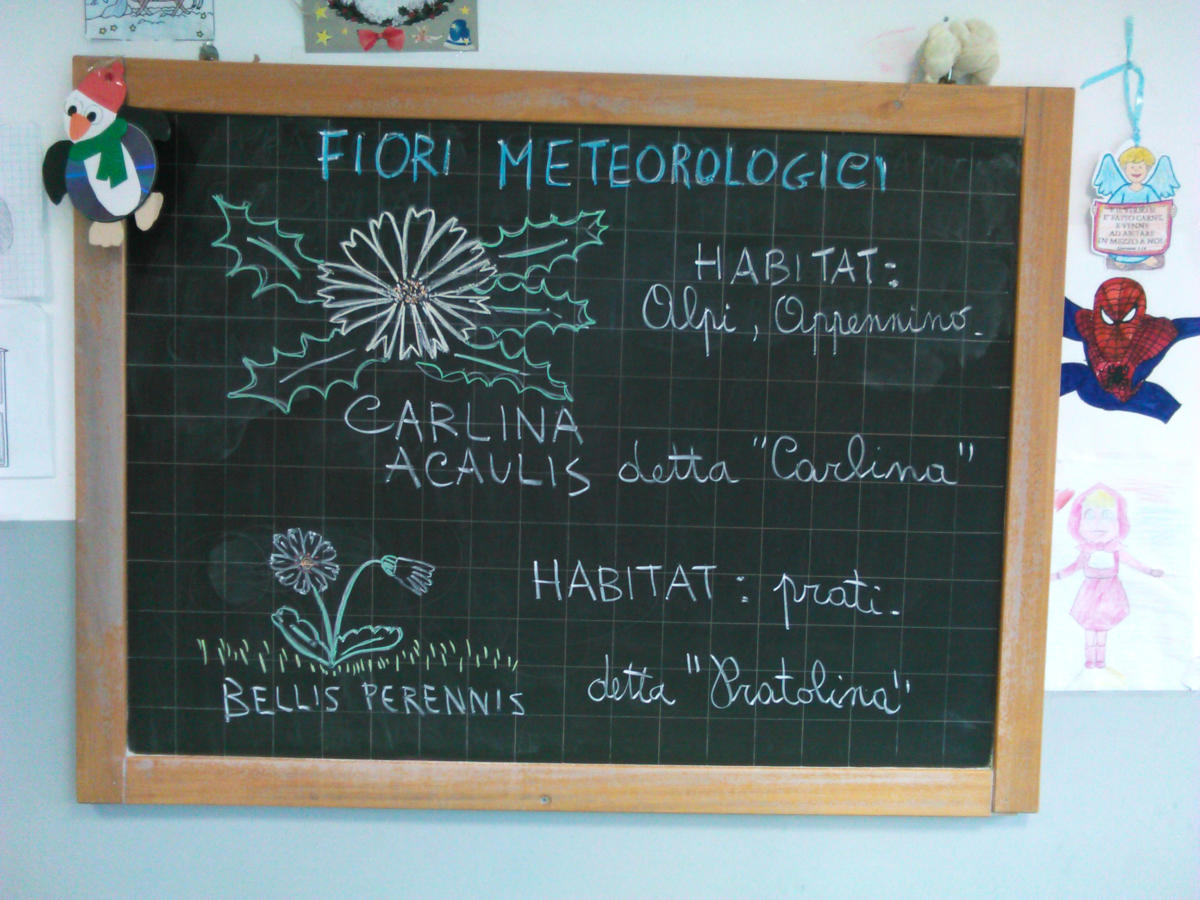 FIORI METEOROLOGICI
HABITAT:
Alpi, Appennino.
CARLINA
ACAULIS detta "Carlina"
HABITAT: prati.
BELLIS PERENNIS detta "Pratolina"
E IL VERBO SI
È FATTO CARNE
E VENNE
AD ABITARE
IN MEZZO A NOI